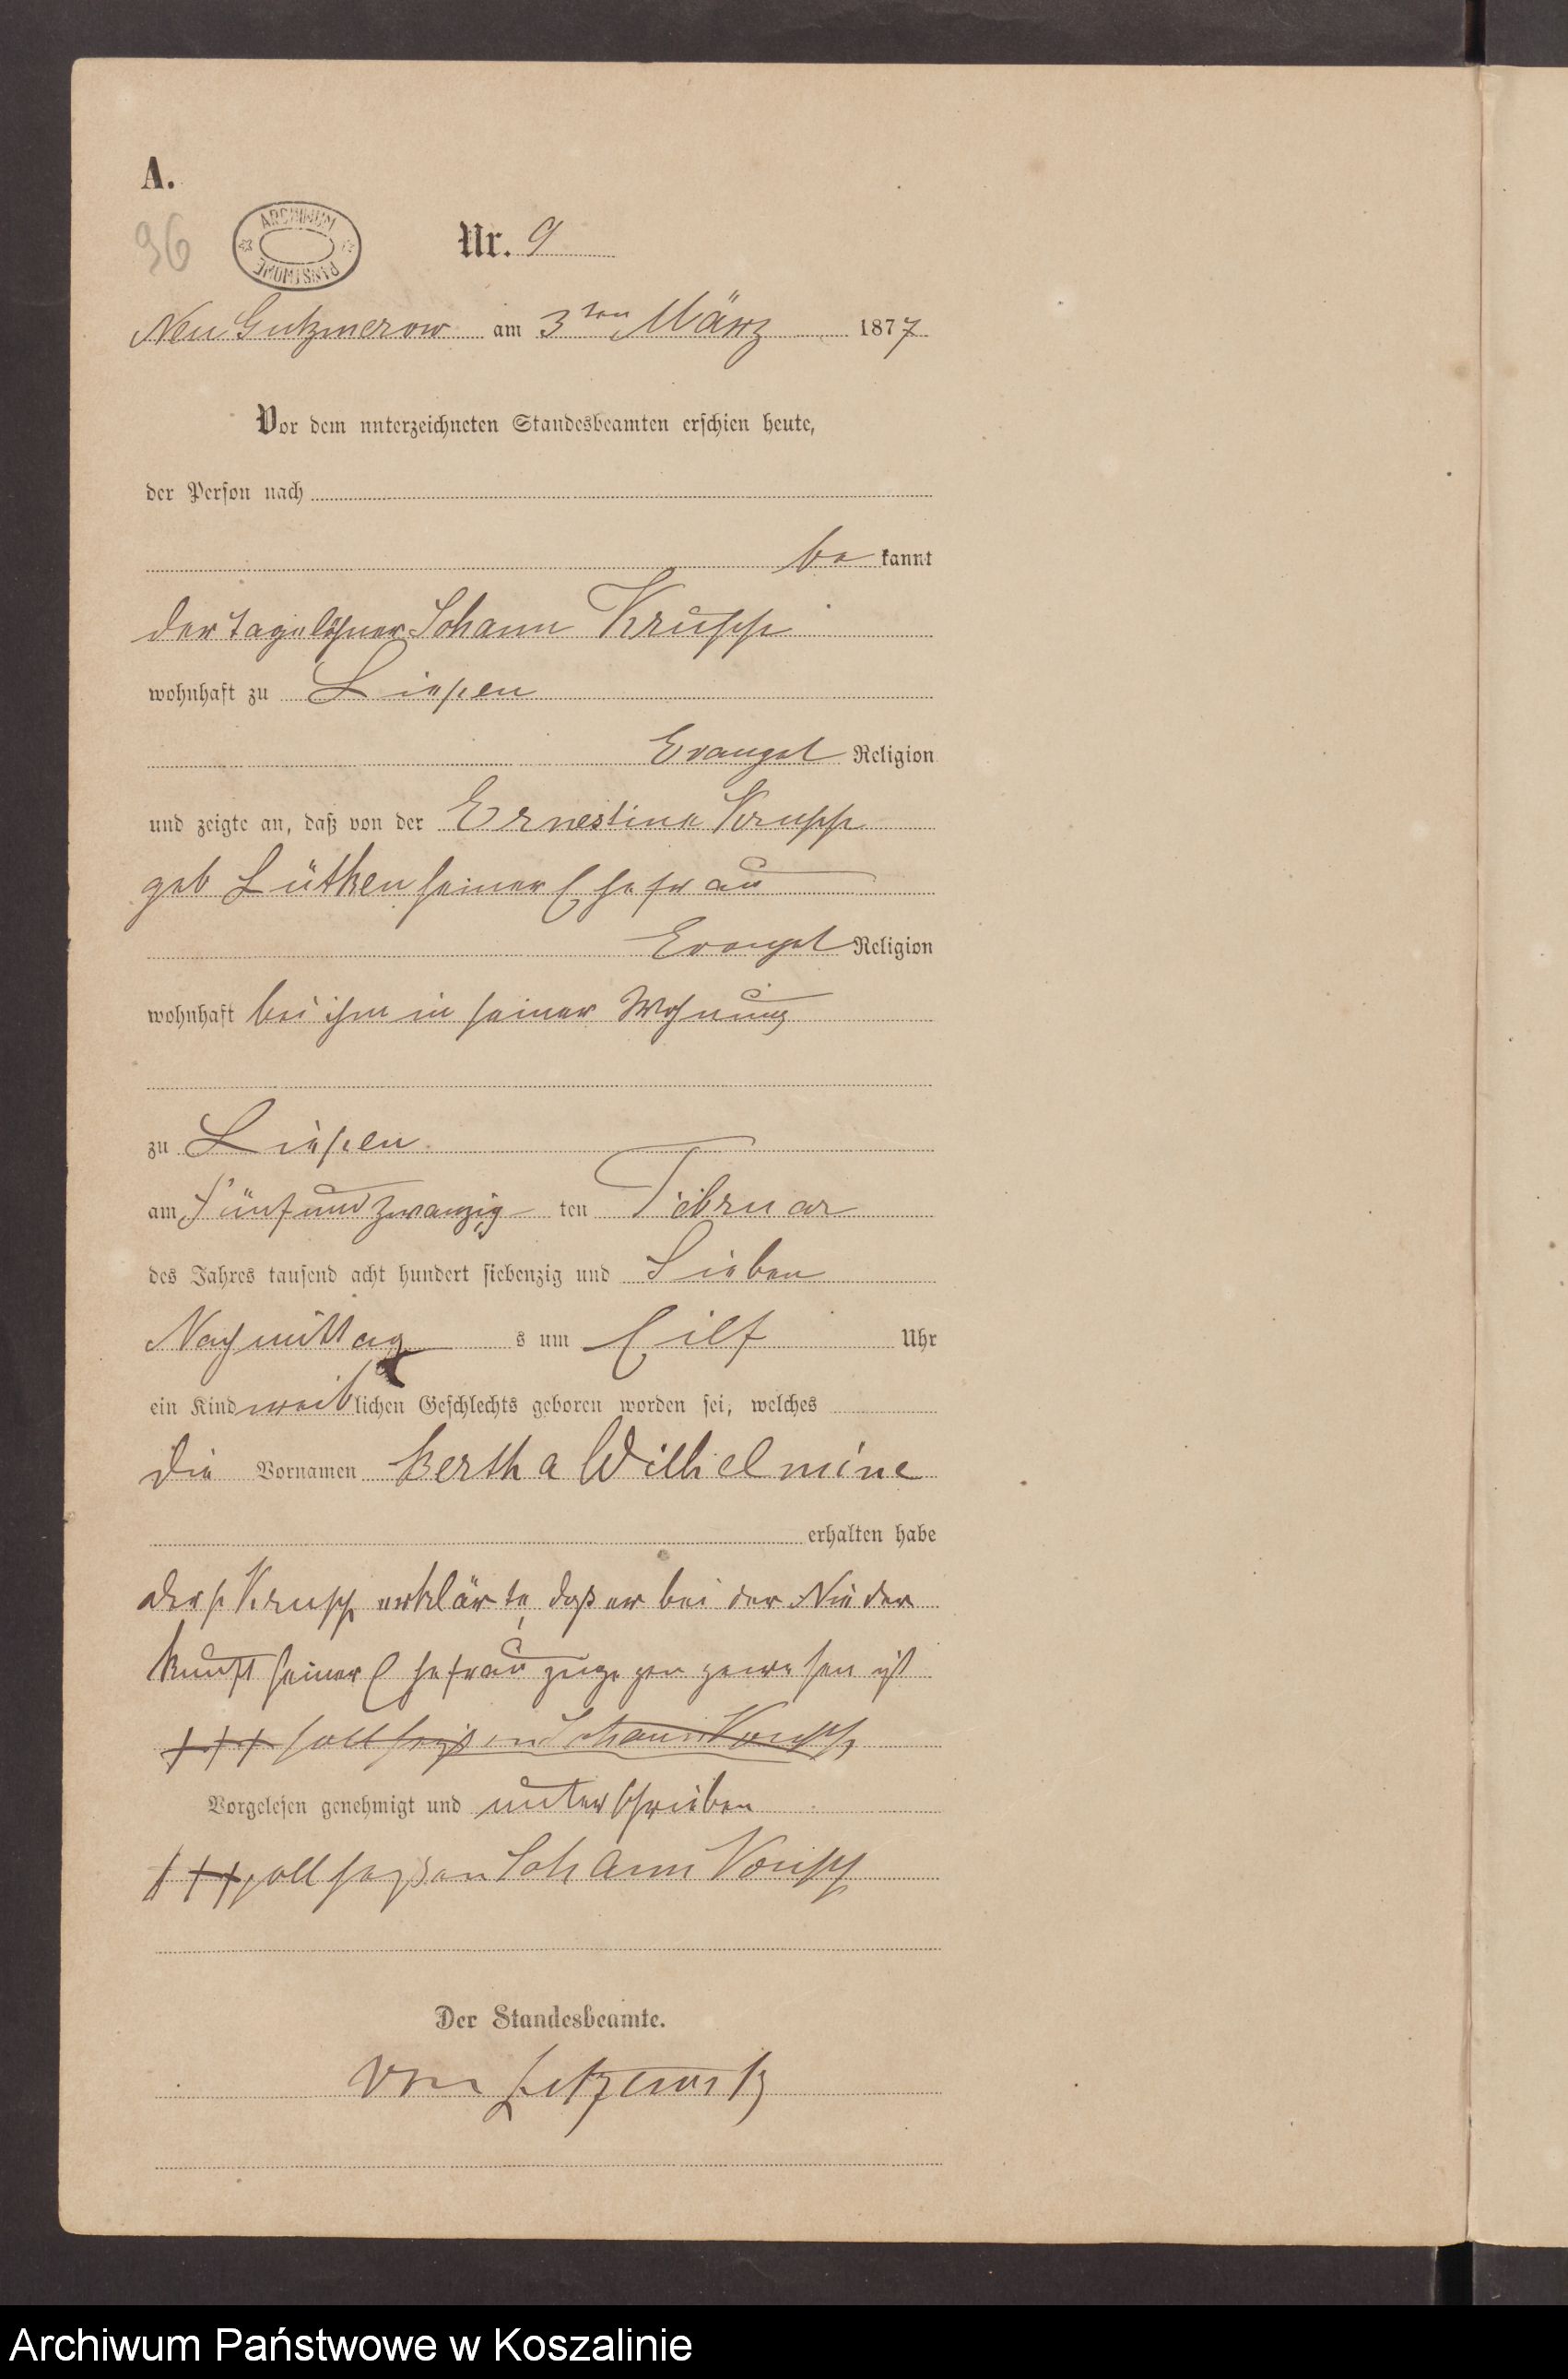 A.
96
ARCHIWUM PAŃSTWOWE
Nr. 9
Neu Gutzmerow am 3ten März 1877
Vor dem unterzeichneten Standesbeamten erschien heute,
der Person nach
be kannt
der Tagelöhner Johann Krupp
wohnhaft zu Liepen
Evangel Religion
und zeigte an, daß von der Ernestine Krupp
geb Lütken seiner Ehefrau
Evangel Religion
wohnhaft bei ihm in seiner Wohnung
zu Liepen
am Fünfundzwanzig ten Februar
des Jahres tausend acht hundert siebenzig und Sieben
Nachmittag s um Eilf Uhr
ein Kind weiblichen Geschlechts geboren worden sei, welches
die Vornamen Bertha Wilhelmine
erhalten habe
Krupp erklärte, daß er bei der Nieder
kunft seiner Ehefrau zugegen gewesen ist
+++ soll heißen Johann Krupp
Vorgelesen genehmigt und unterschrieben
+++ soll heißen Johann Krupp
Der Standesbeamte.
von
Archiwum Państwowe w Koszalinie